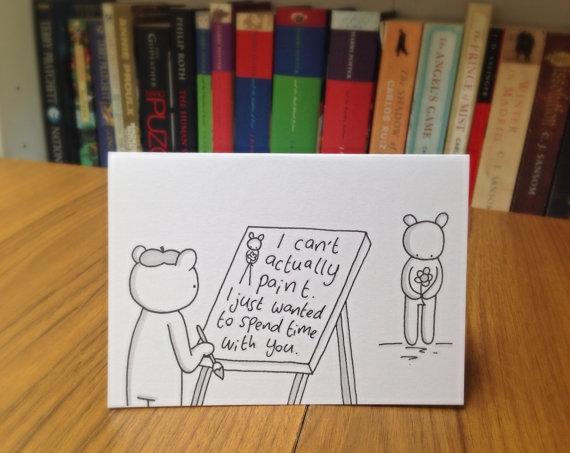 TERRY PRATCHETT
NATION
ANNIE PROULX
PHILIP ROTH THE HUMAN
PUZO
HARRY POTTER
THE SHADOW OF
CARLOS RUIZ
THE ANGEL'S GAME
THE PRINCE OF MIST
WINTER IN MADRID
C. J. SANSOM
C. J. SANSOM
I can't
actually
paint.
I just wanted
to spend time
with you.